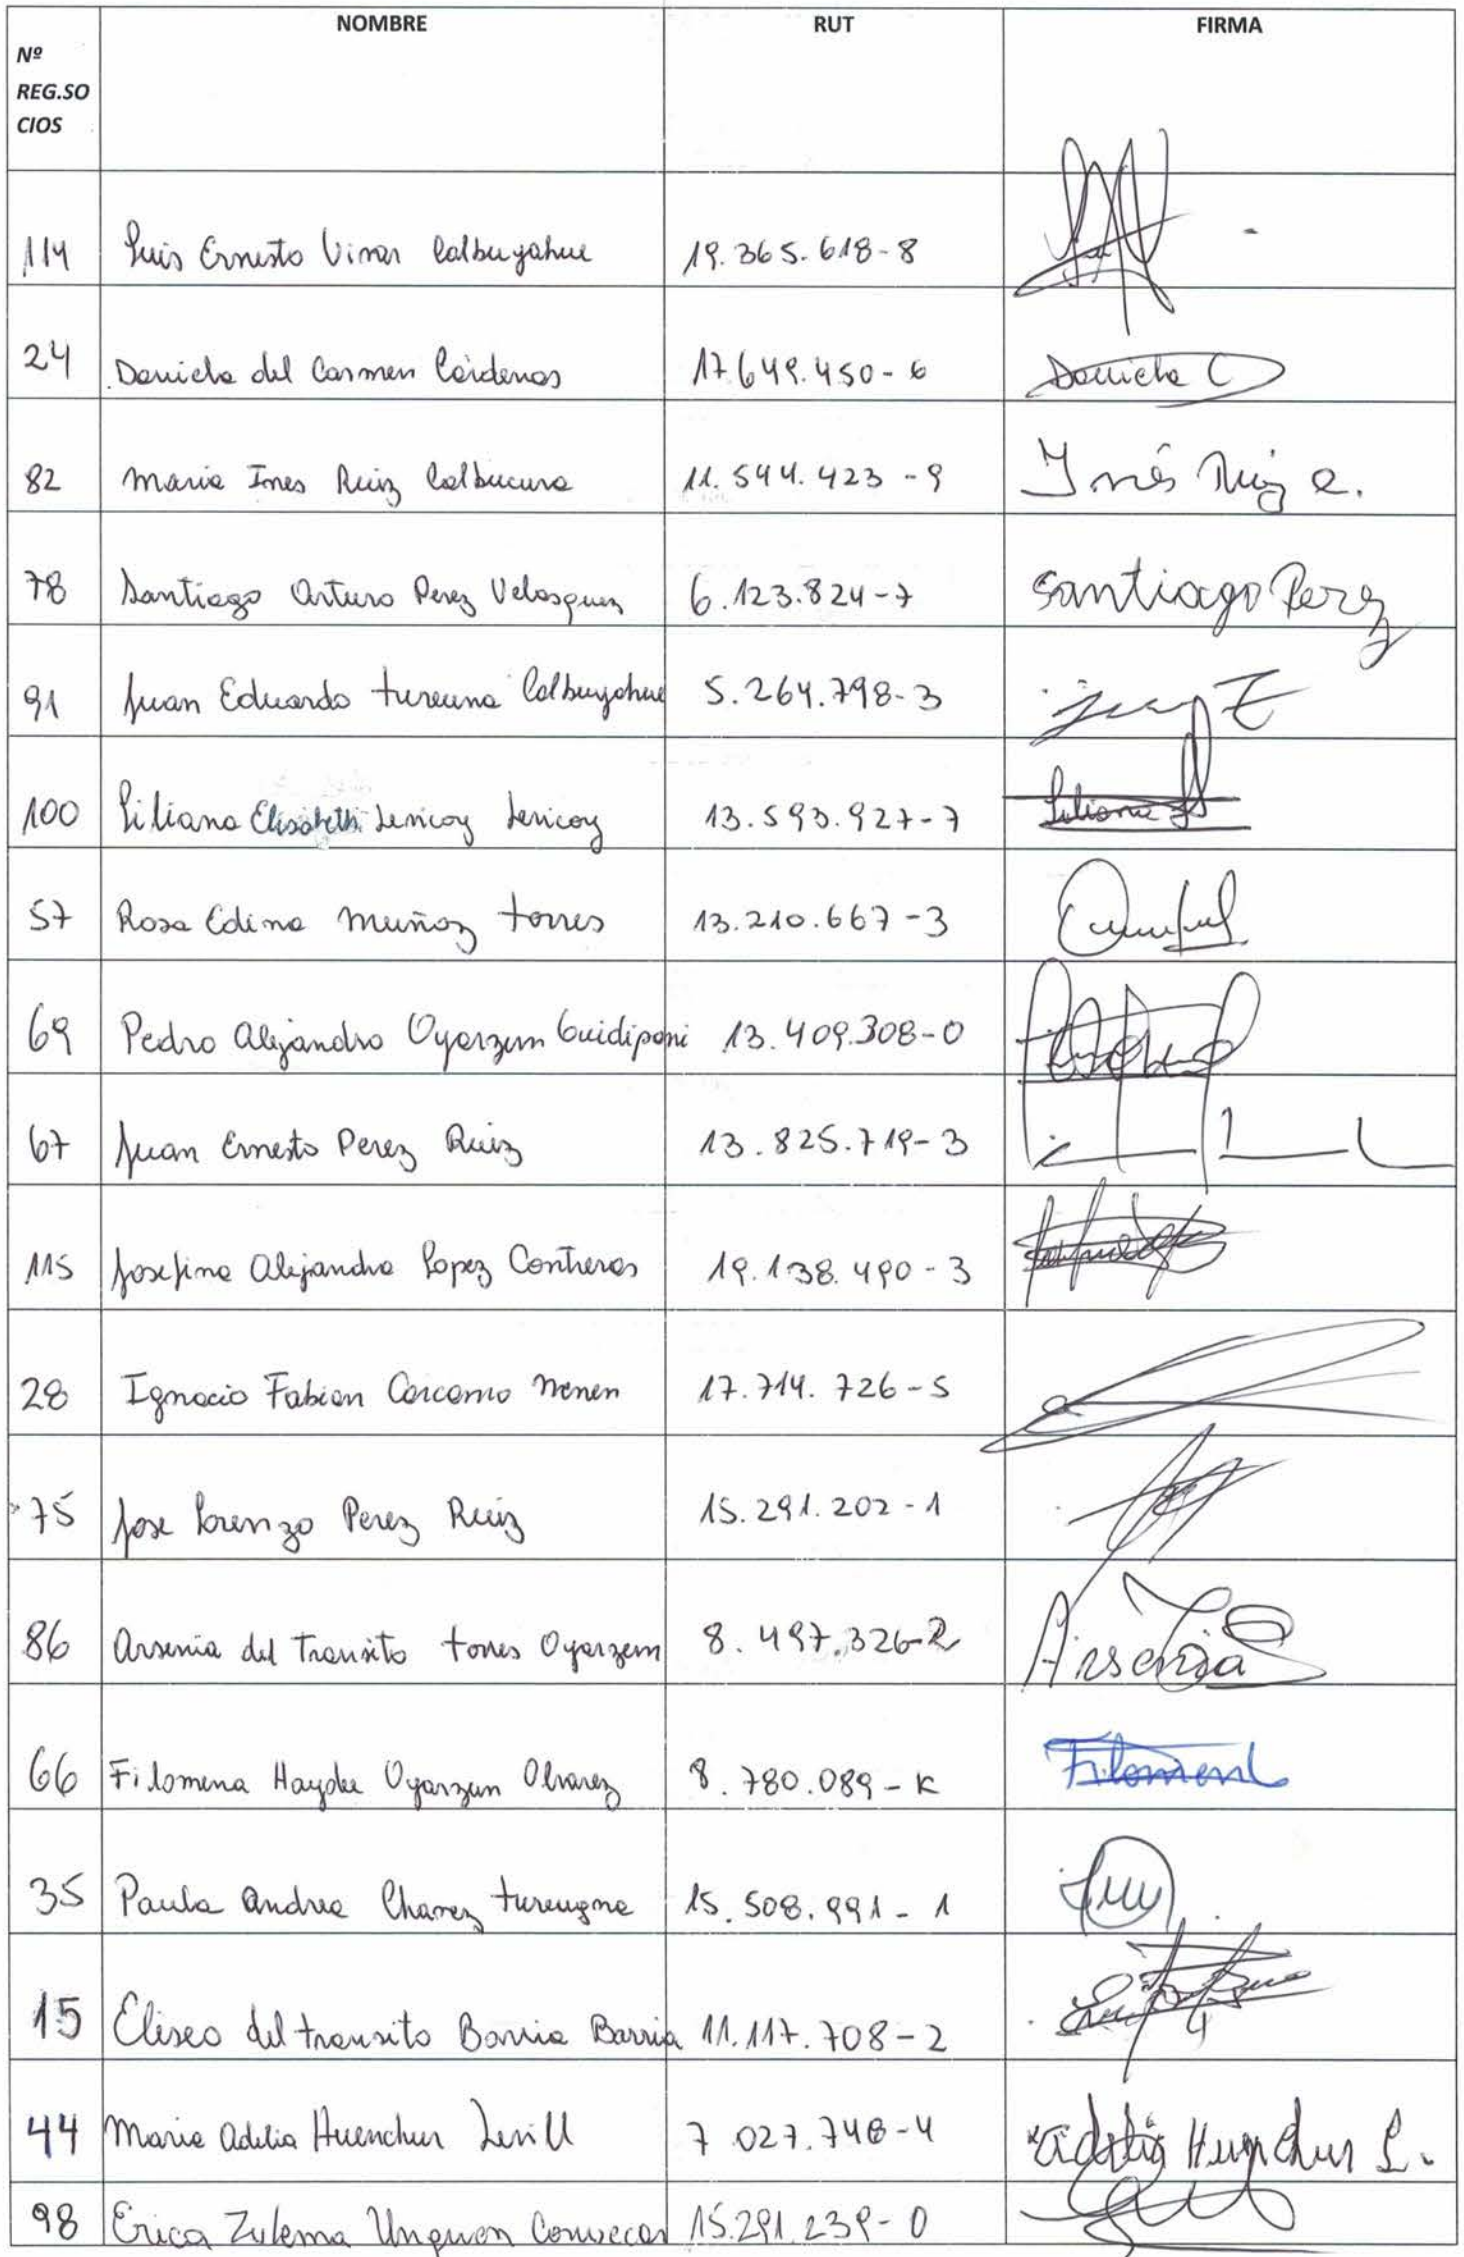 Nº REG.SOCIOS NOMBRE RUT FIRMA
114 Luis Ernesto Vivar Calbuyahue 19.365.618-8
24 Daniela del Carmen Cárdenas 17.649.450-6 Daniela C
82 Maria Ines Ruiz Calbucura 11.544.423-9 Inés Ruiz C.
78 Santiago Arturo Perez Velasquez 6.123.824-7 Santiago Perez
91 Juan Eduardo tureuna Calbuyahue 5.264.798-3
100 Liliana Elisabeth Levicoy Levicoy 13.593.927-7 Liliana
57 Rosa Edina Muñoz torres 13.210.667-3
69 Pedro Alejandro Oyarzun Guidipani 13.409.308-0
67 Juan Ernesto Perez Ruiz 13.825.719-3
115 Josefina Alejandra Lopez Contreras 19.138.490-3
28 Ignacio Fabian Carcamo Nenen 17.714.726-5
75 Jose Lorenzo Perez Ruiz 15.291.202-1
86 Arsenia del Transito torres Oyarzun 8.497.326-2 Arsenia
66 Filomena Haydee Oyarzun Olvarez 8.780.089-K Filomena
35 Paula Andrea Chavez tureugna 15.508.991-1
15 Eliseo del transito Barria Barria 11.117.708-2
44 Maria Adelia Huenchur Levill 7.027.748-4 Adelia Huenchur L.
98 Erica Zulema Unquen 15.291.239-0